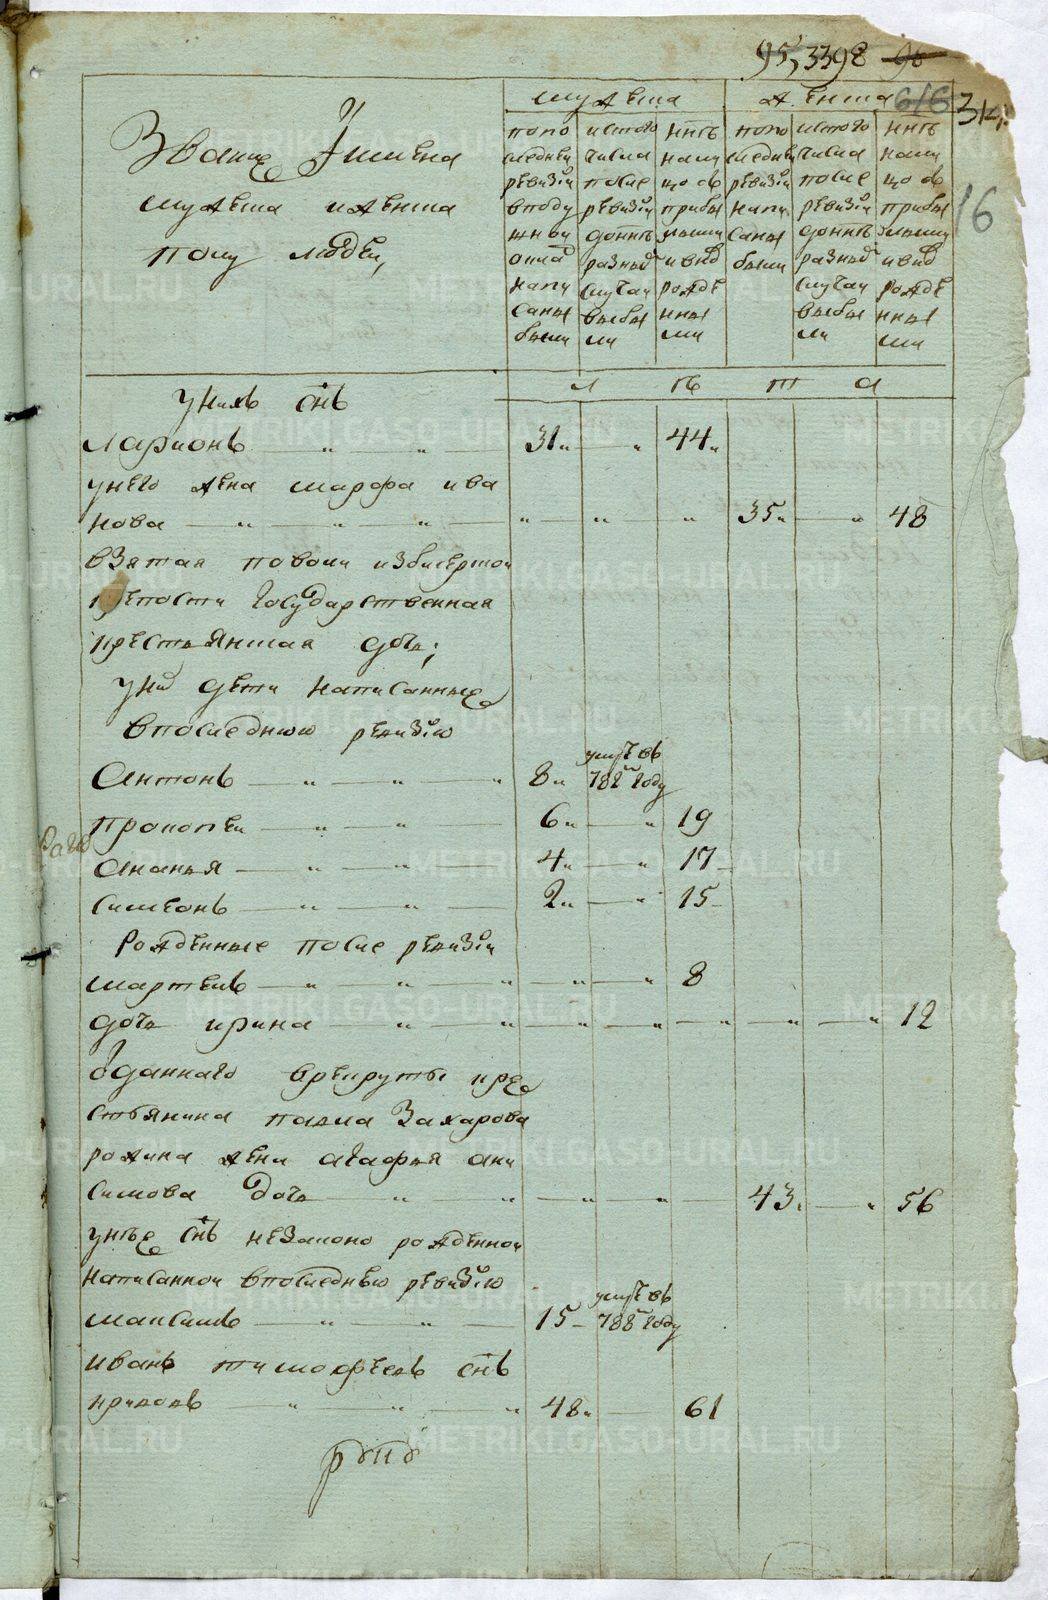 95, 3398 96
616 314.
16
Званіе Імяна
мужеска и женска
полу людей,
мужеска
женска
по по
следней
ревизіи
в поду
шной
окла
напи
саны
были
ис того
числа
после
ревизіи
до нынѣ
разный
случаи
выбы
ли
ннѣ
нали
цо съ
прибы
лыми
и внв
рожде
нны
ми
по по
следней
ревизіи
напи
саны
были
ис того
числа
после
ревизіи
до нынѣ
разный
случаи
выбы
ли
ннѣ
нали
цо съ
прибы
лыми
и внв
рожде
нны
ми
л ѣ т а
у нихъ снъ
ларионъ 31 44
у него жена марфа ива
нова 35 48
взятая
крепости государственная
крестьянская дочь,
у ни дети написанные
в последнюю ревизію
Антонъ 8 умре въ 782 году
прокопеи 6 19
ананья 4 17
симеонъ 2 15
рожденные после ревизіи
мартенъ 8
дочь ирина 12
отданнаго в рекруты кре
стьянина павла Захарова
рожина жена агафья ани
симова дочь 43 56
у нее снъ незаконо рожденной
написанной в последнюю ревизію
максимъ 15 умре въ 788 году
иванъ тимофеевъ снъ
кривовъ 48 61